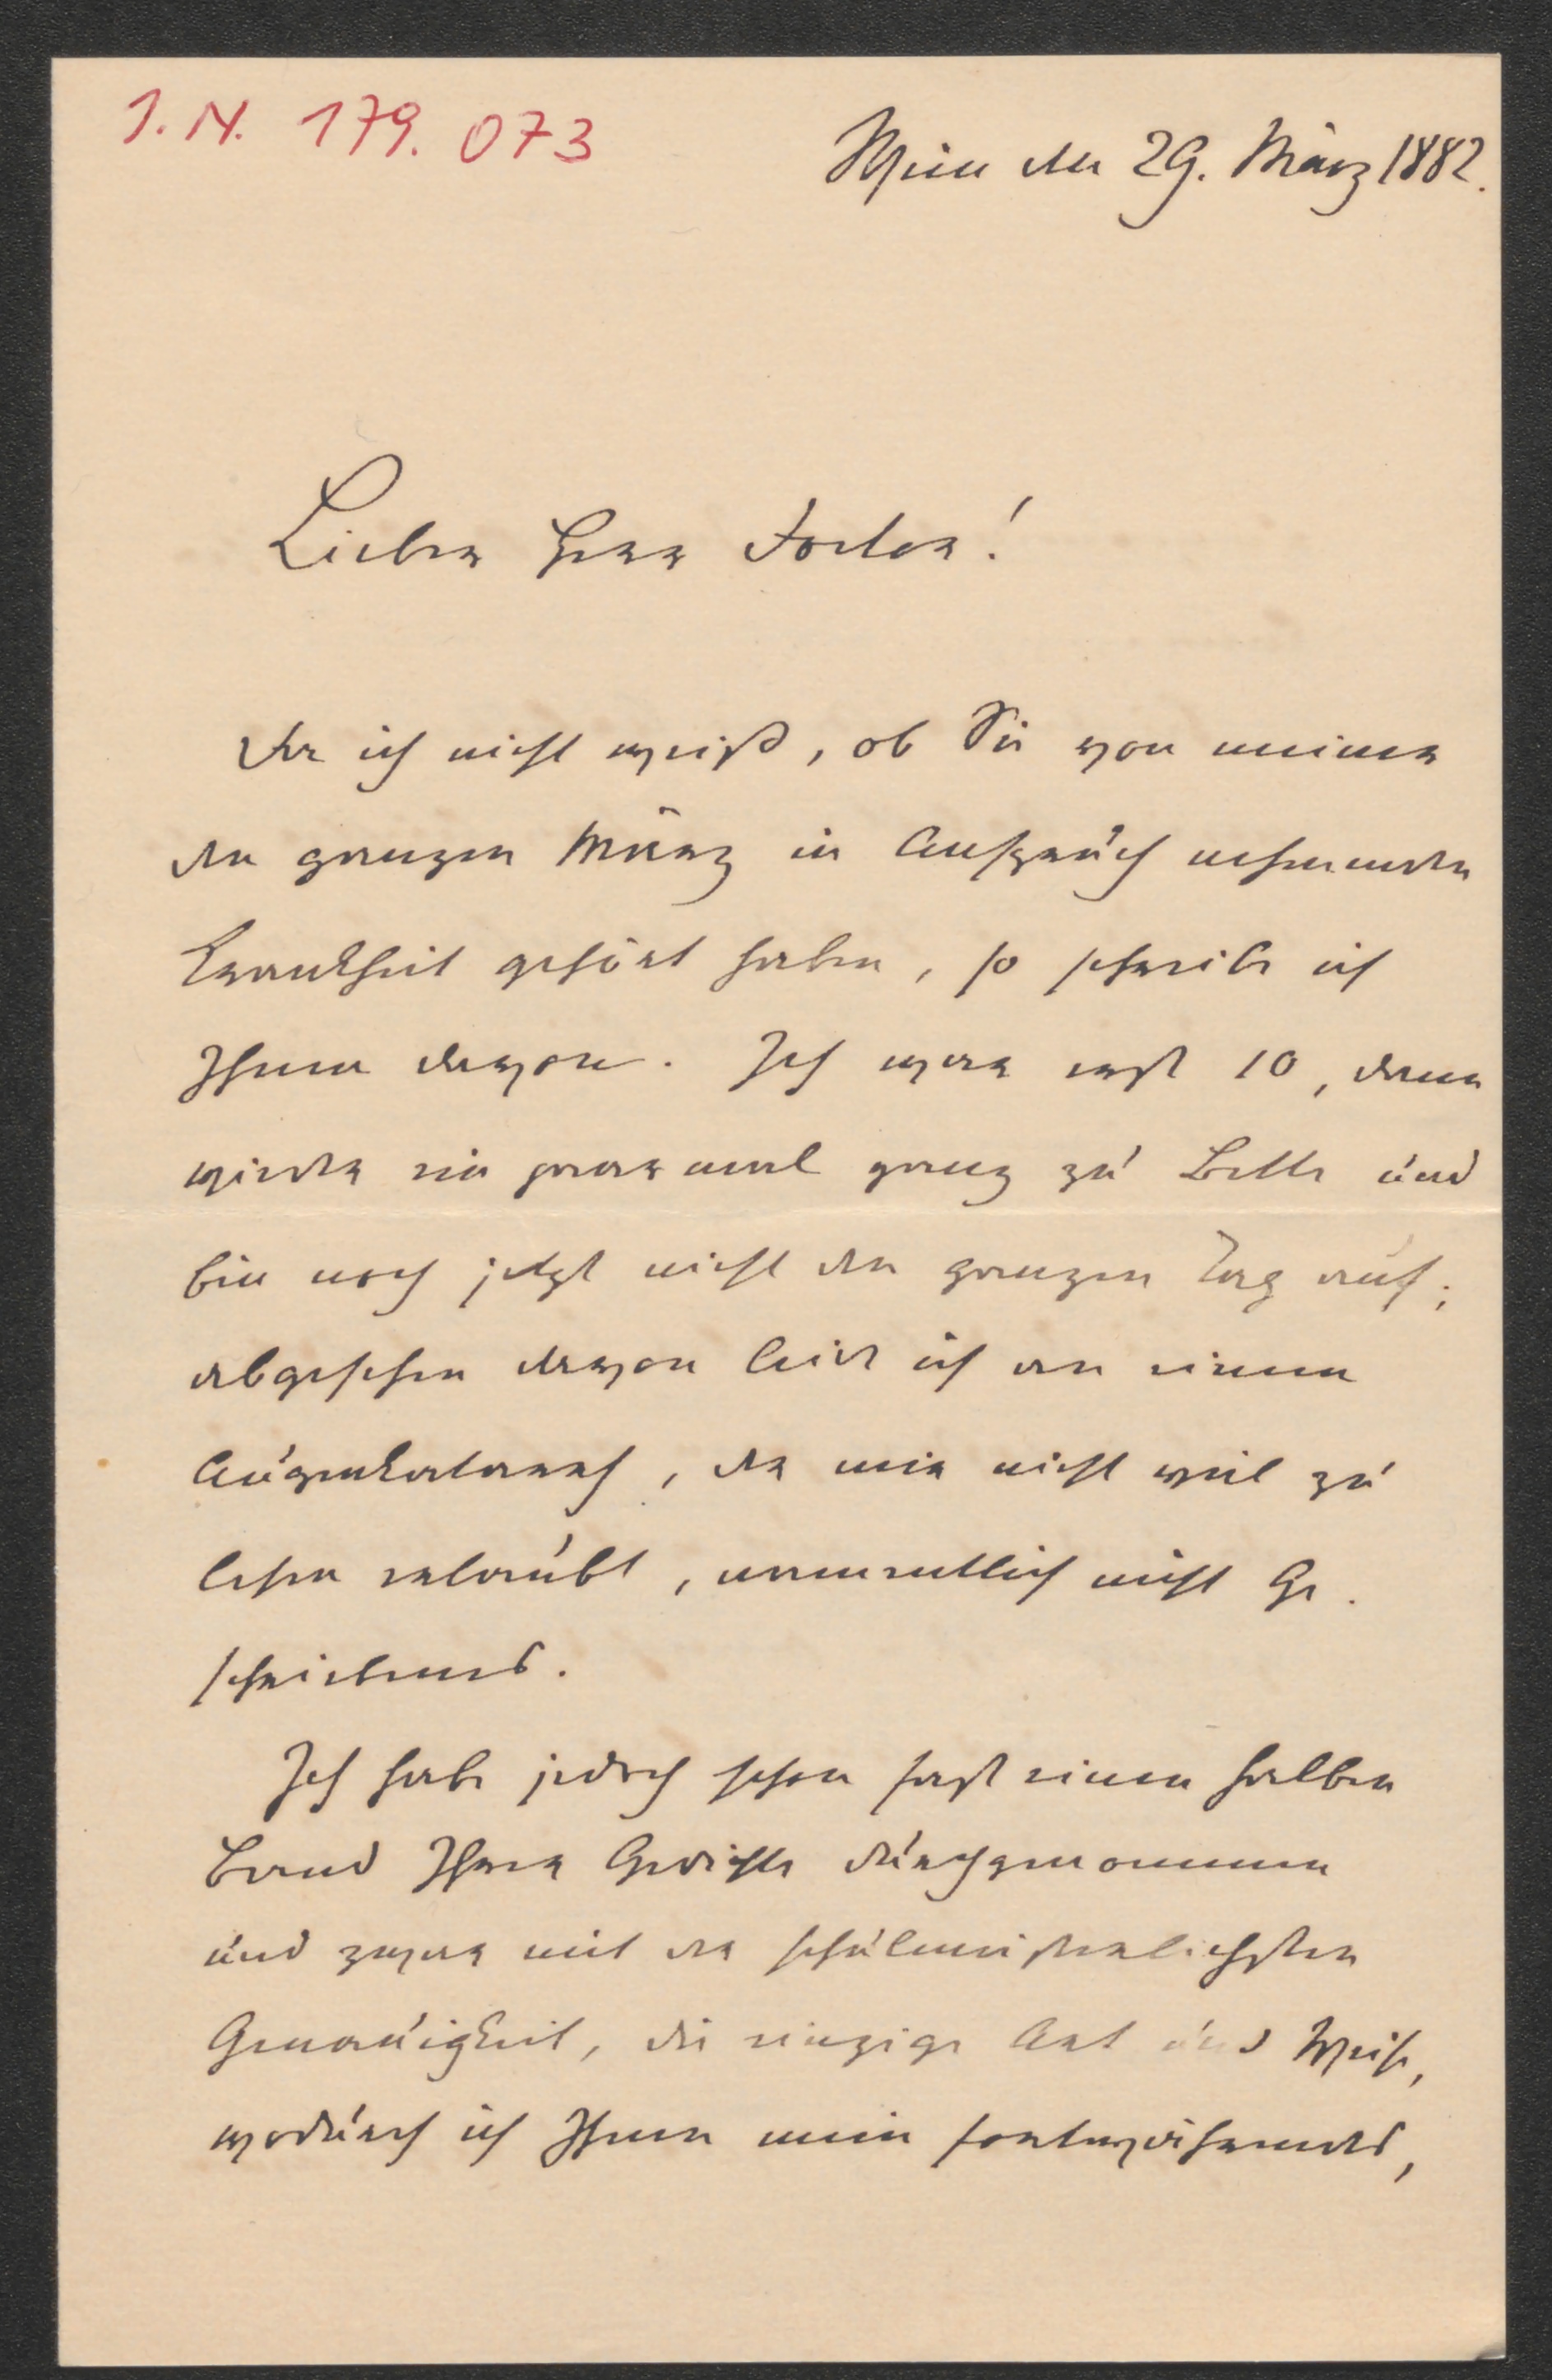 I. N. 179.073
Wien den 29. März 1882.
Lieber Herr Doctor!
Da ich nicht weiß, ob Sie von meiner
den ganzen März in Anspruch nehmenden
Krankheit gehört haben, so schreibe ich
Ihnen davon. Ich war erst 10, dann
wieder ein paar mal ganz zu Bette und
bin noch jetzt nicht den ganzen Tag auf;
abgesehen davon leide ich an einem
Augenkatarrh, der mir nicht viel zu
lesen erlaubt, namentlich nicht Ge-
schriebenes.
Ich habe jedoch schon fast einen halben
Band Ihrer Gedichte durchgenommen
und zwar mit der schulmeisterlichsten
Genauigkeit, die einzige Art und Weise,
wodurch ich Ihnen mein fortwährendes,